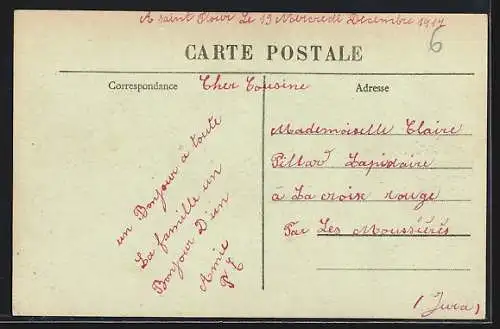 A saint flour Le 19 Mercredi Décembre 1917
6
CARTE POSTALE
Correspondance
Cher Cousine
Adresse
un Bonjour à toute
La famille un
Bonjour D'un
Amie
P C
Mademoiselle Claire
Pillard Lapidaire
à La croix rouge
Par Les Moussières
(Jura)